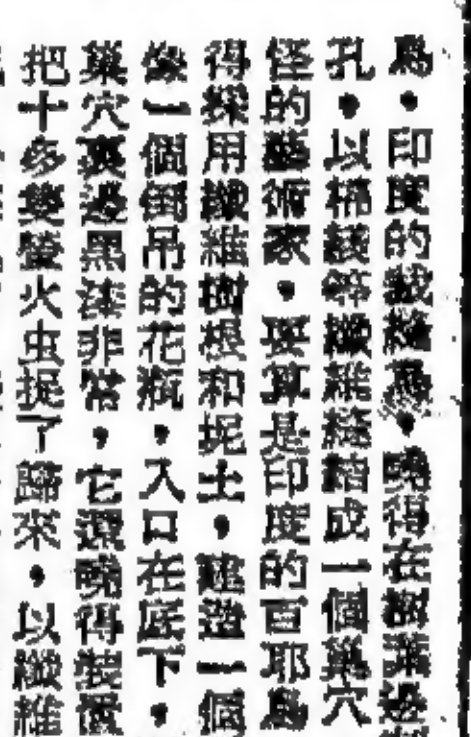 鳥，印度的裁縫鳥，曉得在樹葉邊
孔，以棉綫等纖維縫結成一個巢穴
怪的藝術家，要算是印度的百耶鳥
得採用纖維樹根和坭土，建造一個
像一個倒吊的花瓶，入口在底下，
巢穴裏邊黑漆非常，它還曉得裝置
把十多隻螢火虫捉了歸來，以纖維